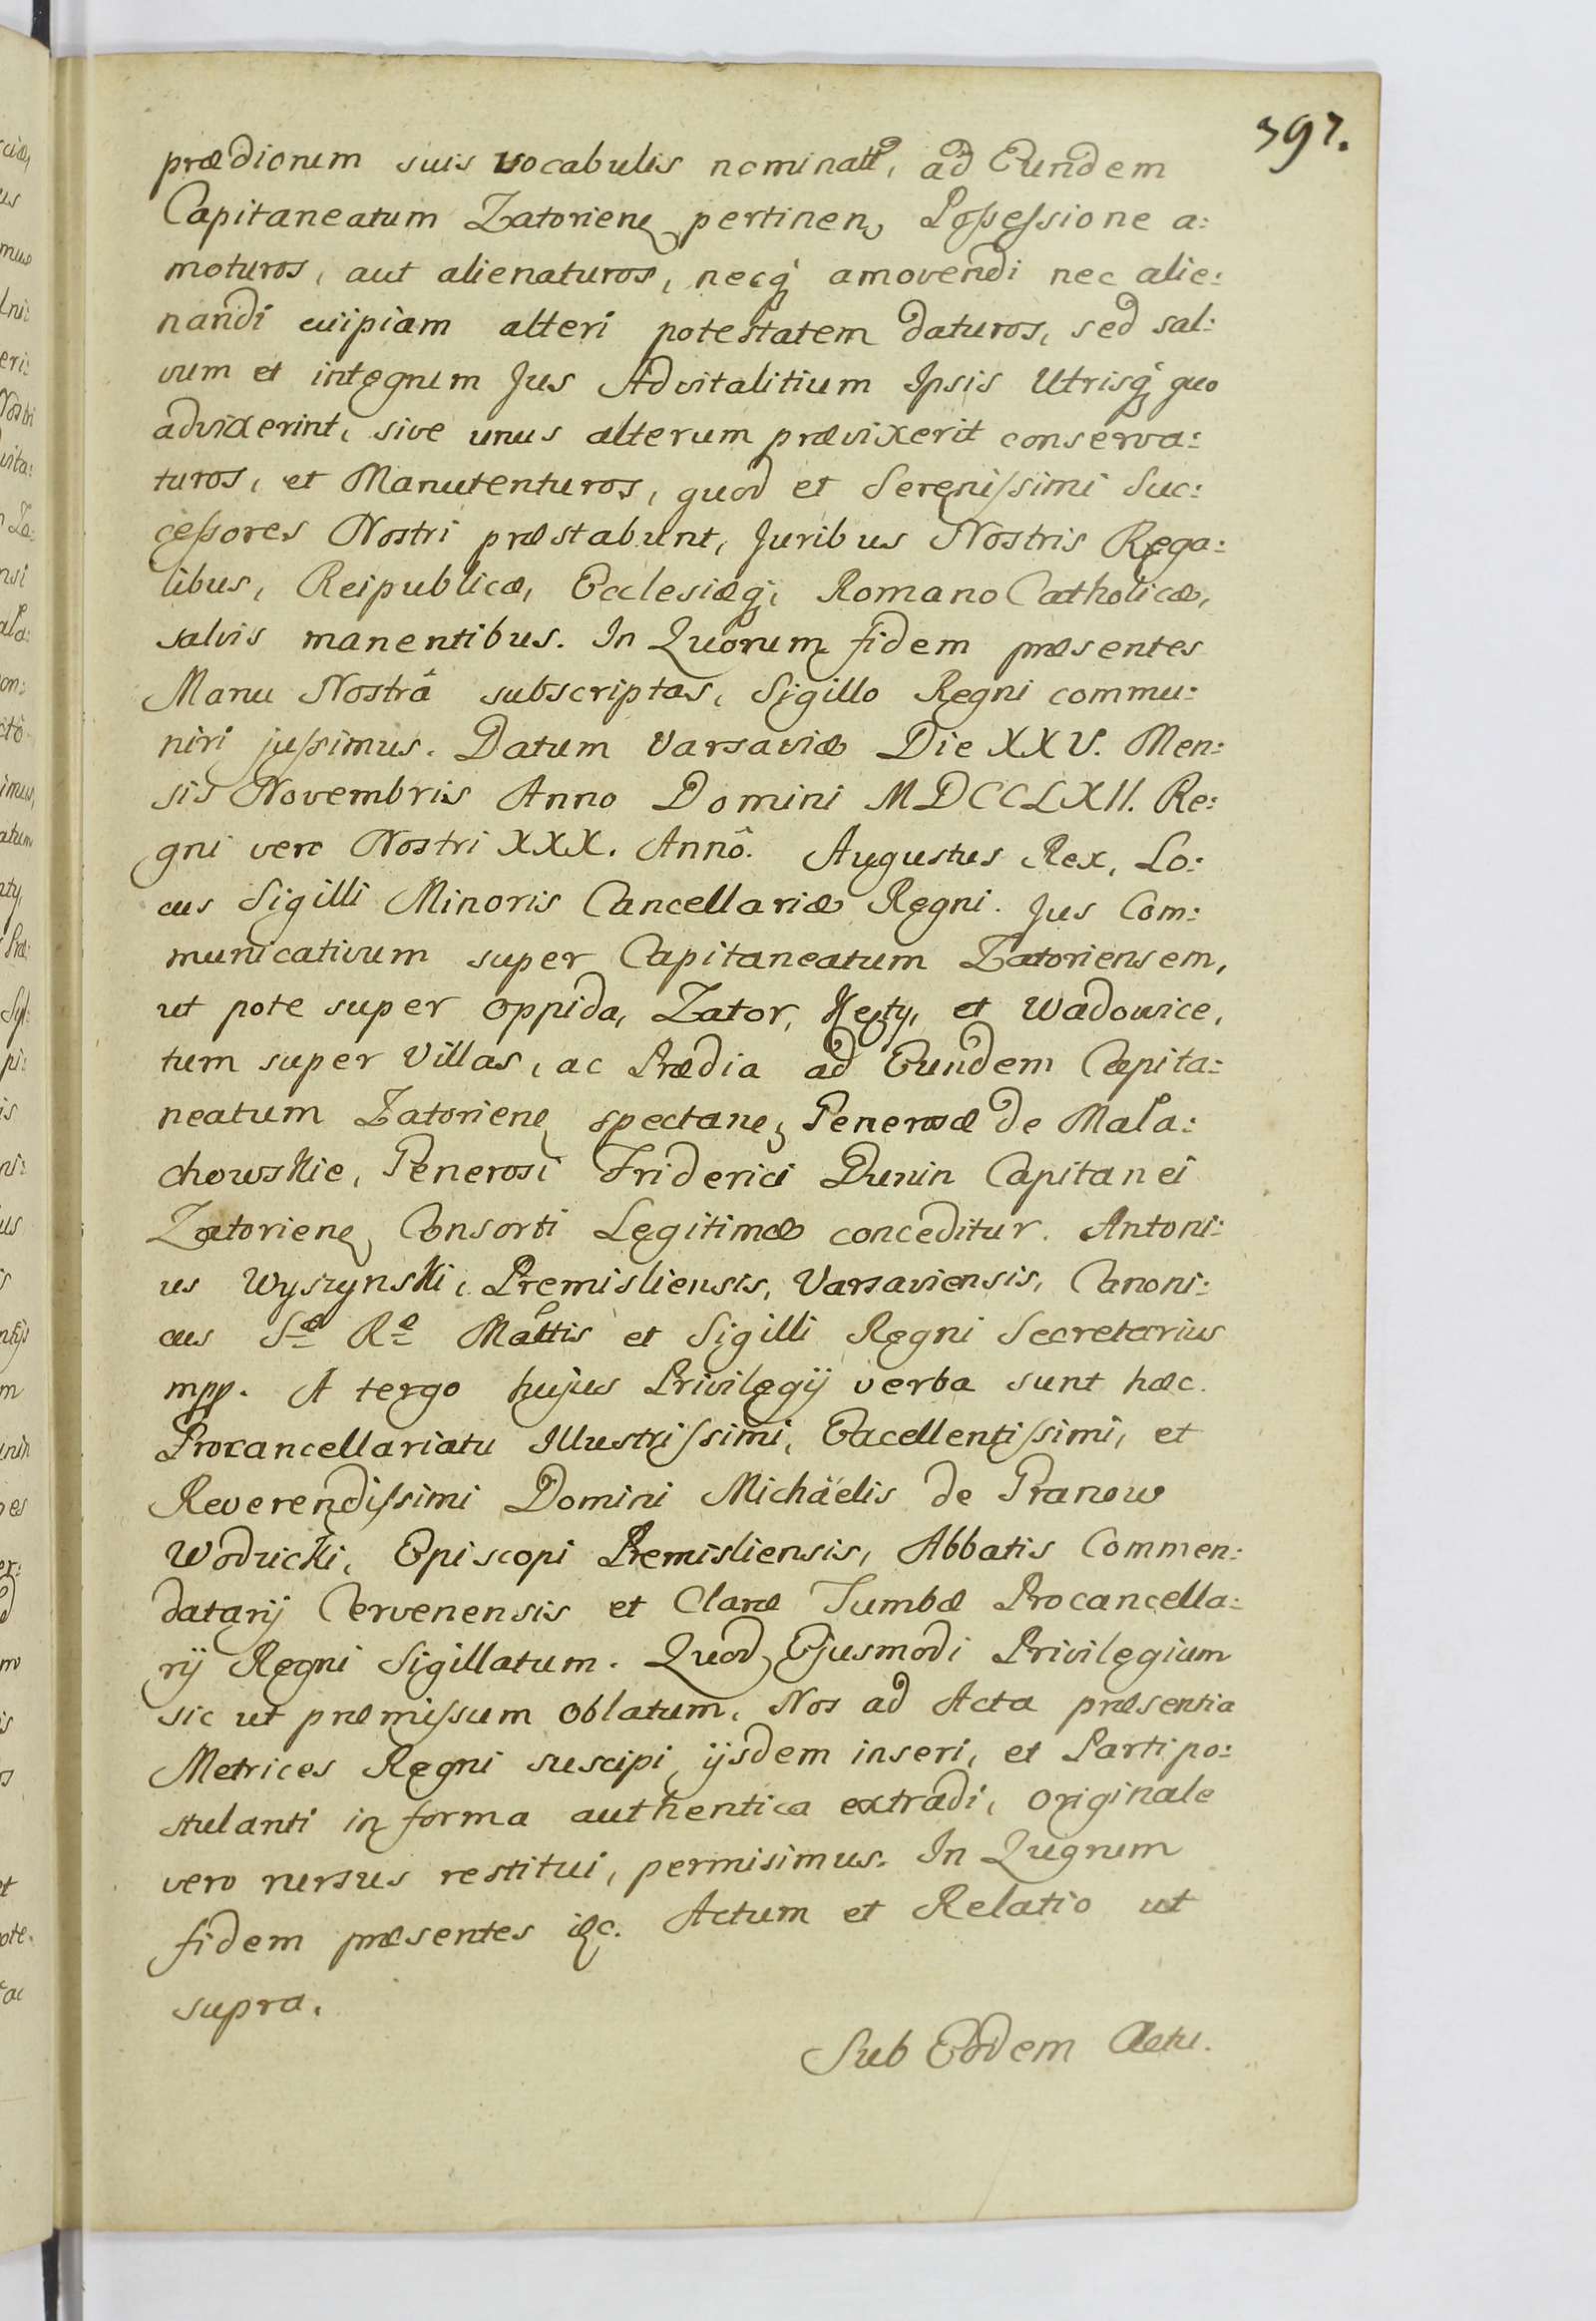 397.
prædiorum suis vocabulis nominatt, ad Eundem
Capitaneatum Zatorien, pertinen, Possessione a:
moturos, aut alienaturos, necq amovendi nec alie:
nandi cuipiam alteri potestatem daturos, sed sal:
vum et integrum Jus Advitalitium Ipsis Utrisq quo
advixerint, sive unus alterum prævixerit conserva:
turos, et Manutenturos, quod et Serenissimi Suc:
cessores Nostri præstabunt, Juribus Nostris Rega:
libus, Reipublicæ, Ecclesiæq, Romano Catholicæ,
salvis manentibus. In Quorum fidem præsentes
Manu Nostrâ subscriptas, Sigillo Regni commu:
niri jussimus. Datum Varsaviæ Die XXV. Men:
sis Novembris Anno Domini MDCCLXII. Re:
gni vero Nostri XXX. Annô. Augustus Rex, Lo:
cus Sigilli Minoris Cancellariæ Regni. Jus Com:
municativum super Capitaneatum Zatoriensem,
ut pote super oppida, Zator, Kęty, et Wadowice,
tum super Villas, ac Prædia ad Eundem Capita:
neatum Zatorien, spectan, Generosæ de Mała:
chowskie, Generosi Friderici Dunin Capitanei
Zatorien, Consorti Legitimæ conceditur. Antoni:
us Wyszynski, Premisliensis, Varsaviensis, Canoni:
cus Sæ Ræ Mattis et Sigilli Regni Secretarius
mpp. A tergo hujus Privilegij verba sunt hæc.
Procancellariatu Illustrissimi, Excellentissimi, et
Reverendissimi Domini Michäelis de Granow
Wodzicki, Episcopi Premisliensis, Abbatis Commen:
datarij Cervenensis et Claræ Tumbæ Procancella:
rij Regni Sigillatum. Quod Ejusmodi Privilegium
sic ut præmissum oblatum, Nos ad Acta præsentia
Metrices Regni suscipi, ijsdem inseri, et Parti po:
stulanti in forma authentica extradi, originale
vero rursus restitui, permisimus. In Quorum
fidem præsentes &c. Actum et Relatio ut
supra.
Sub Eodem Actu.